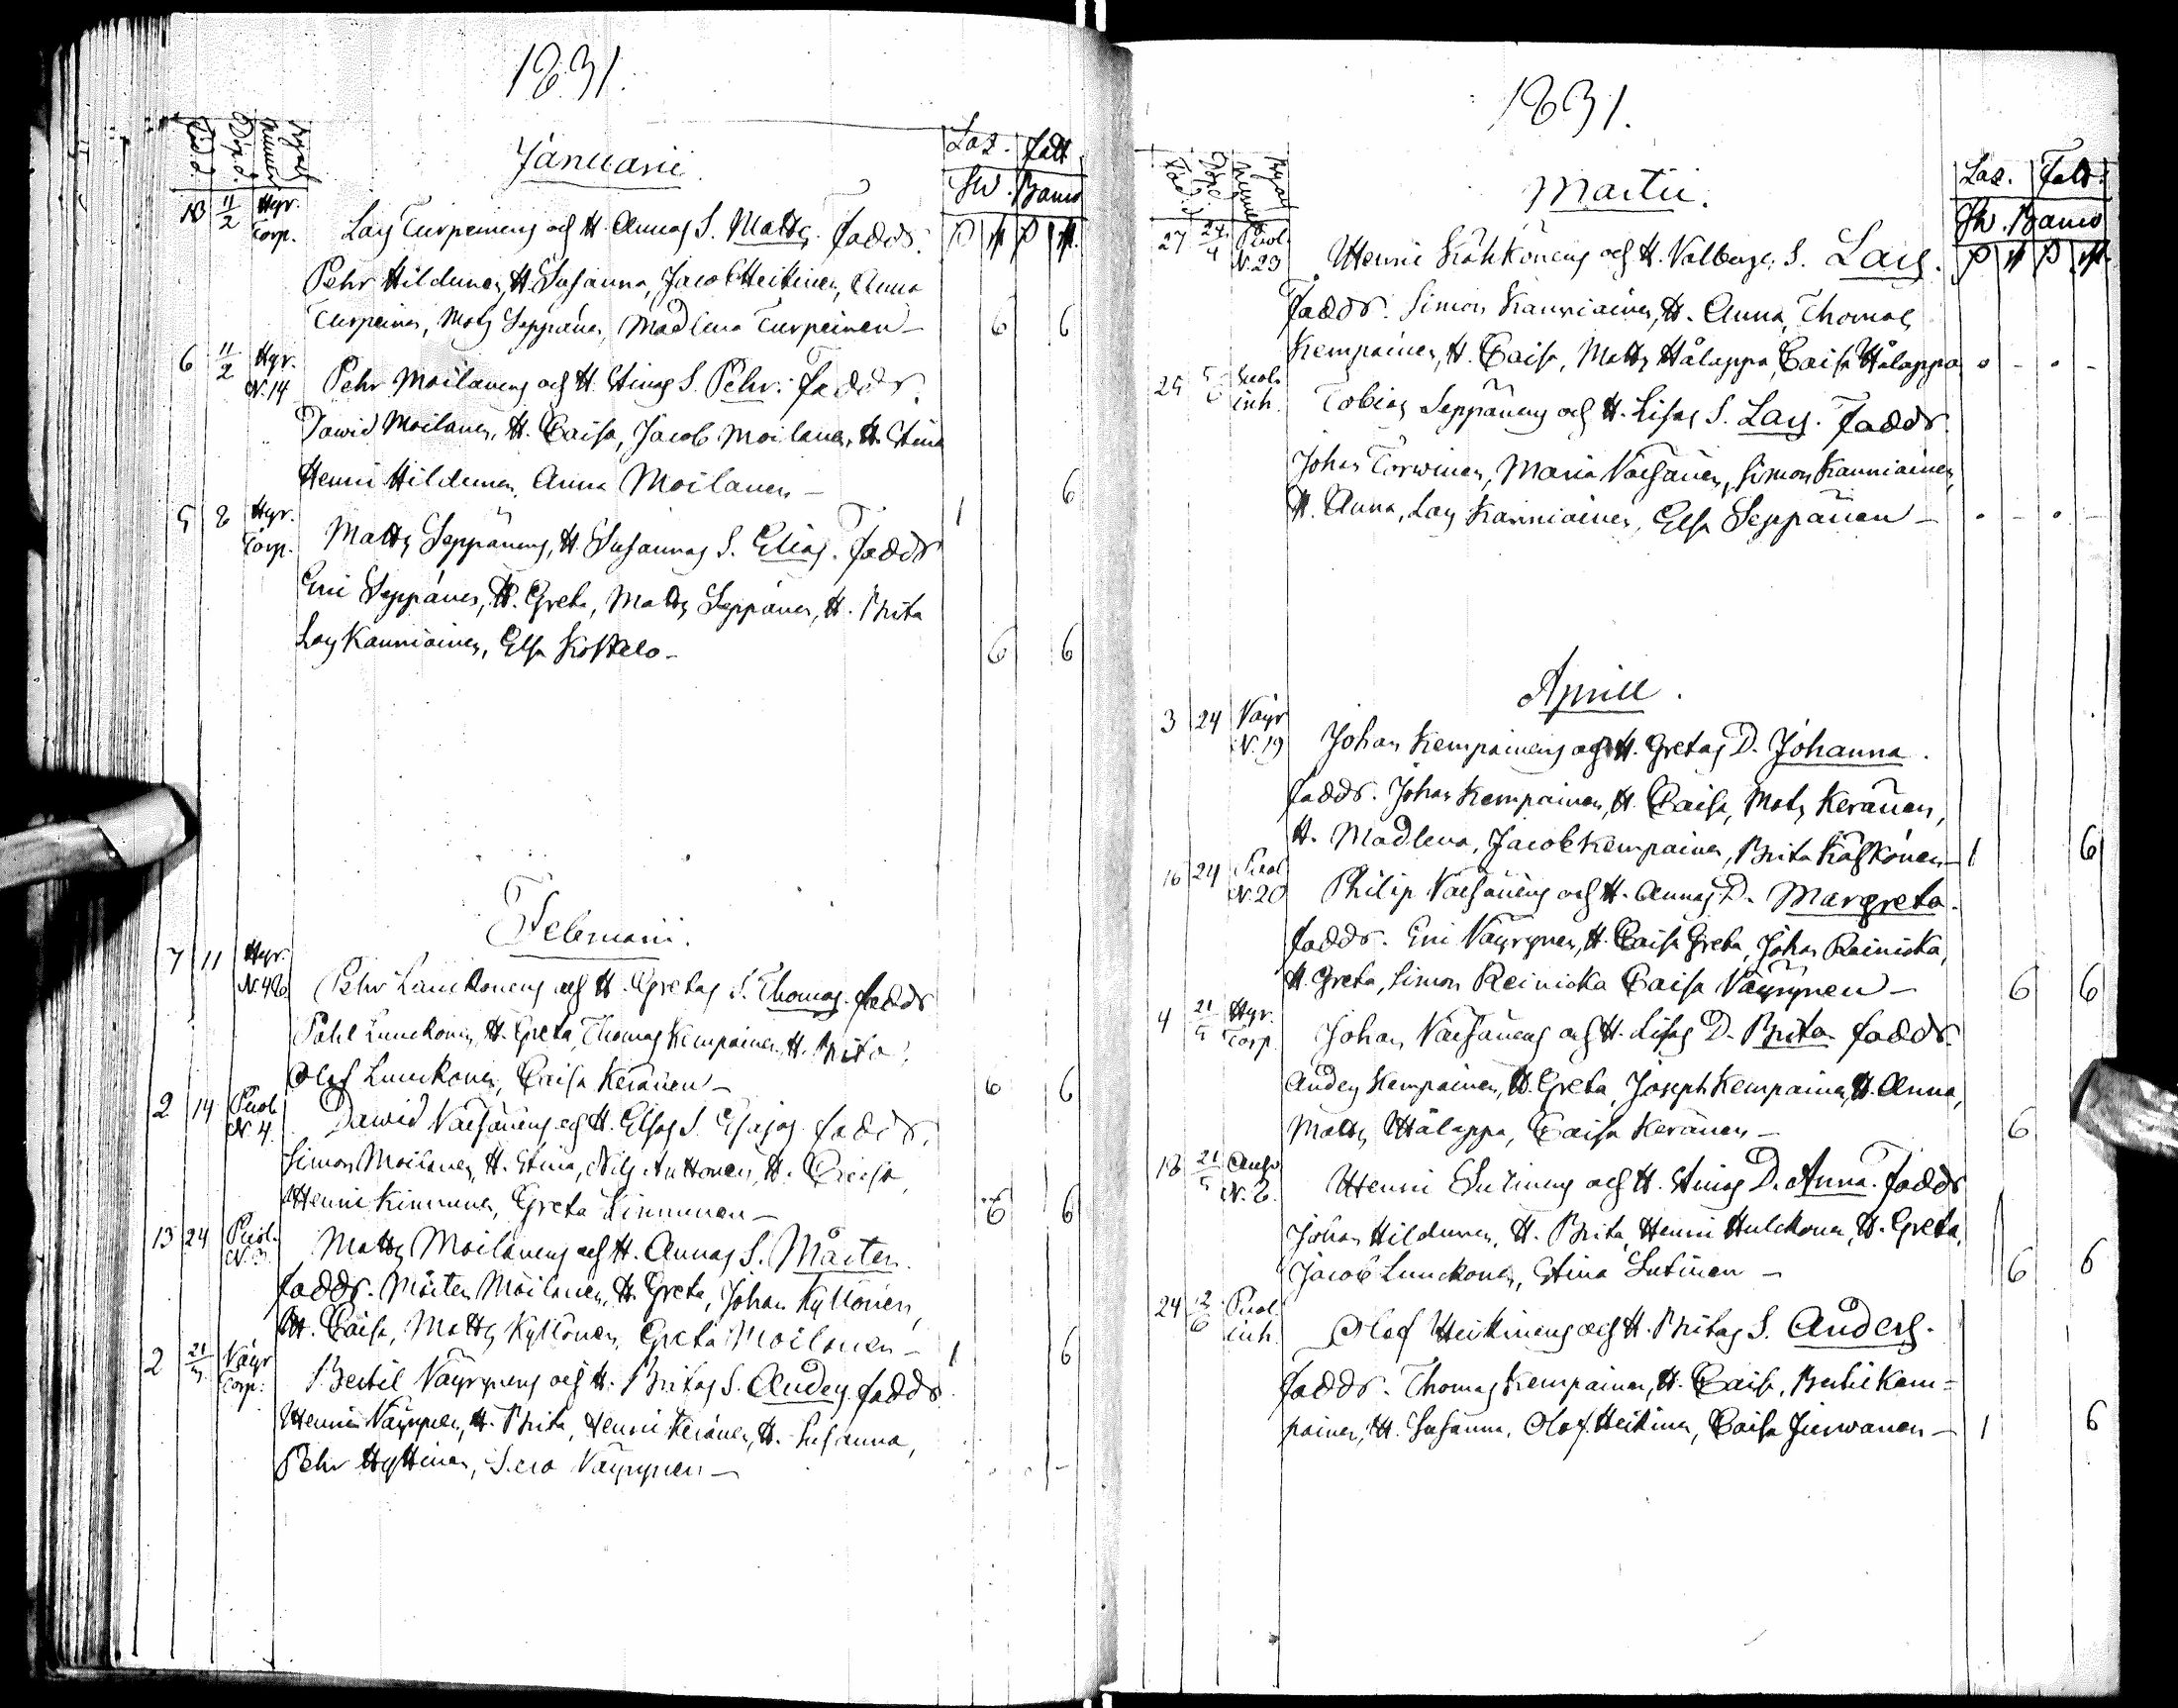 1831.
Född
Döpd
Byalt
Nummer
Januarii
Laz. fatt
Sw. Banco
18 11/2 Hyr. Torp. Lars Turpeinens och H. Annas S. Matts. Fadd:
Pehr Hildunen, H. Susanna, Jacob Heikinen, Anna
Turpeinen, Mats Seppänen, Madlena Turpeinen – 6 6
6 11/2 Hyr. N.14 Pehr Moilanens och H. Stinas S. Pehr. faddr.
Dawid Moilanen, H. Caisa, Jacob Moilanen, H. Stina
Henric Hildunen, Anna Moilanen – 1 6
5 8 Hyr. Torp. Matts Seppänens, H. Susannas S. Elias. faddr
Eric Seppänen, H. Greta, Matts Seppänen, H. Brita
Lars Kanniainen, Elsa Kostelo – 6 6
Februarii.
7 11 Hyr. N.48 Pehr Lunckonens och H. Gretas S. Thomas. faddr
Påhl Lunckonen, H. Greta, Thomas Kempainen, H. Brita
Olof Lunckonen, Caisa Keränen – 6 6
2 14 Puol. N 4. Dawid Väisänens och H. Elsas S. Esajas faddr.
Simon Moilanen, H. Stina, Nils Anttonen, H. Caisa,
Henric Kinnunen, Greta Kinnunen – 6 6
13 24 Puol. N.3. Matts Moilanens och H. Annas S. Mårten.
faddr. Mårten Moilanen, H. Greta, Johan Kyllönen,
H. Caisa, Matts Kyllönen, Greta Moilanen – 1 6
2 21/3 Väyr Torp. Bertil Väyrynens och H. Britas S. Anders. faddr.
Henric Väyrynen, H. Brita, Henric Keränen, H. Susanna,
Pehr Hyttinen, Väyrynen –
1831.
Född
Döpd
Byalt
Nummer
Martii.
Laz. Fatt.
Sw. Banco
27 24/4 Puol. N.29 Henric Kähkönens och H. Valborgs S. Lars.
Faddr. Simon Kanniainen, H. Anna, Thomas
Kempainen, H. Caisa, Matts Hålappa, Caisa Hålappa
25 Puol. inh. Tobias Seppänens och H. Lisas S. Lars. Faddr.
Johan Törwinen, Maria Väisänen, Simon Kanniainen,
H. Anna, Lars Kanniainen, Elsa Seppänen –
Aprill.
3 24 Väyr N.19 Johan Kempainens och H. Gretas D. Johanna.
faddr. Johan Kempainen, H. Caisa, Mats Keränen,
H. Madlena, Jacob Kempainen, Brita Kähkönen – 1 6
16 24 Puol N.20 Philip Väisänens och H. Annas D. Margreta.
faddr. Eric Väyrynen, H. Caisa Greta, Johan Rainicka,
H. Greta, Simon Reinicka Caisa Väyrynen – 6 6
4 21/5 Hyr. Torp. Johan Väisänens och H. Lisas D. Brita faddr.
Anders Kempainen, H. Greta, Joseph Kempainen, H. Anna,
Matts Hålappa, Caisa Keränen – 6
18 21/5 N.2. Henric Sutinens och H. Stinas D. Anna. faddr
Johan Hildunen, H. Brita, Henric Hulckonen, H. Greta,
Jacob Lunckonen, Stina Sutinen – 6 6
24 12/6 Puol. inh. Olof Heikinens och H. Britas S. Anders.
faddr. Thomas Kempainen, H. Caisa, Bertil Kem=
painen, H. Susanna, Olof Heikinen, Caisa Juwanen – 1 6